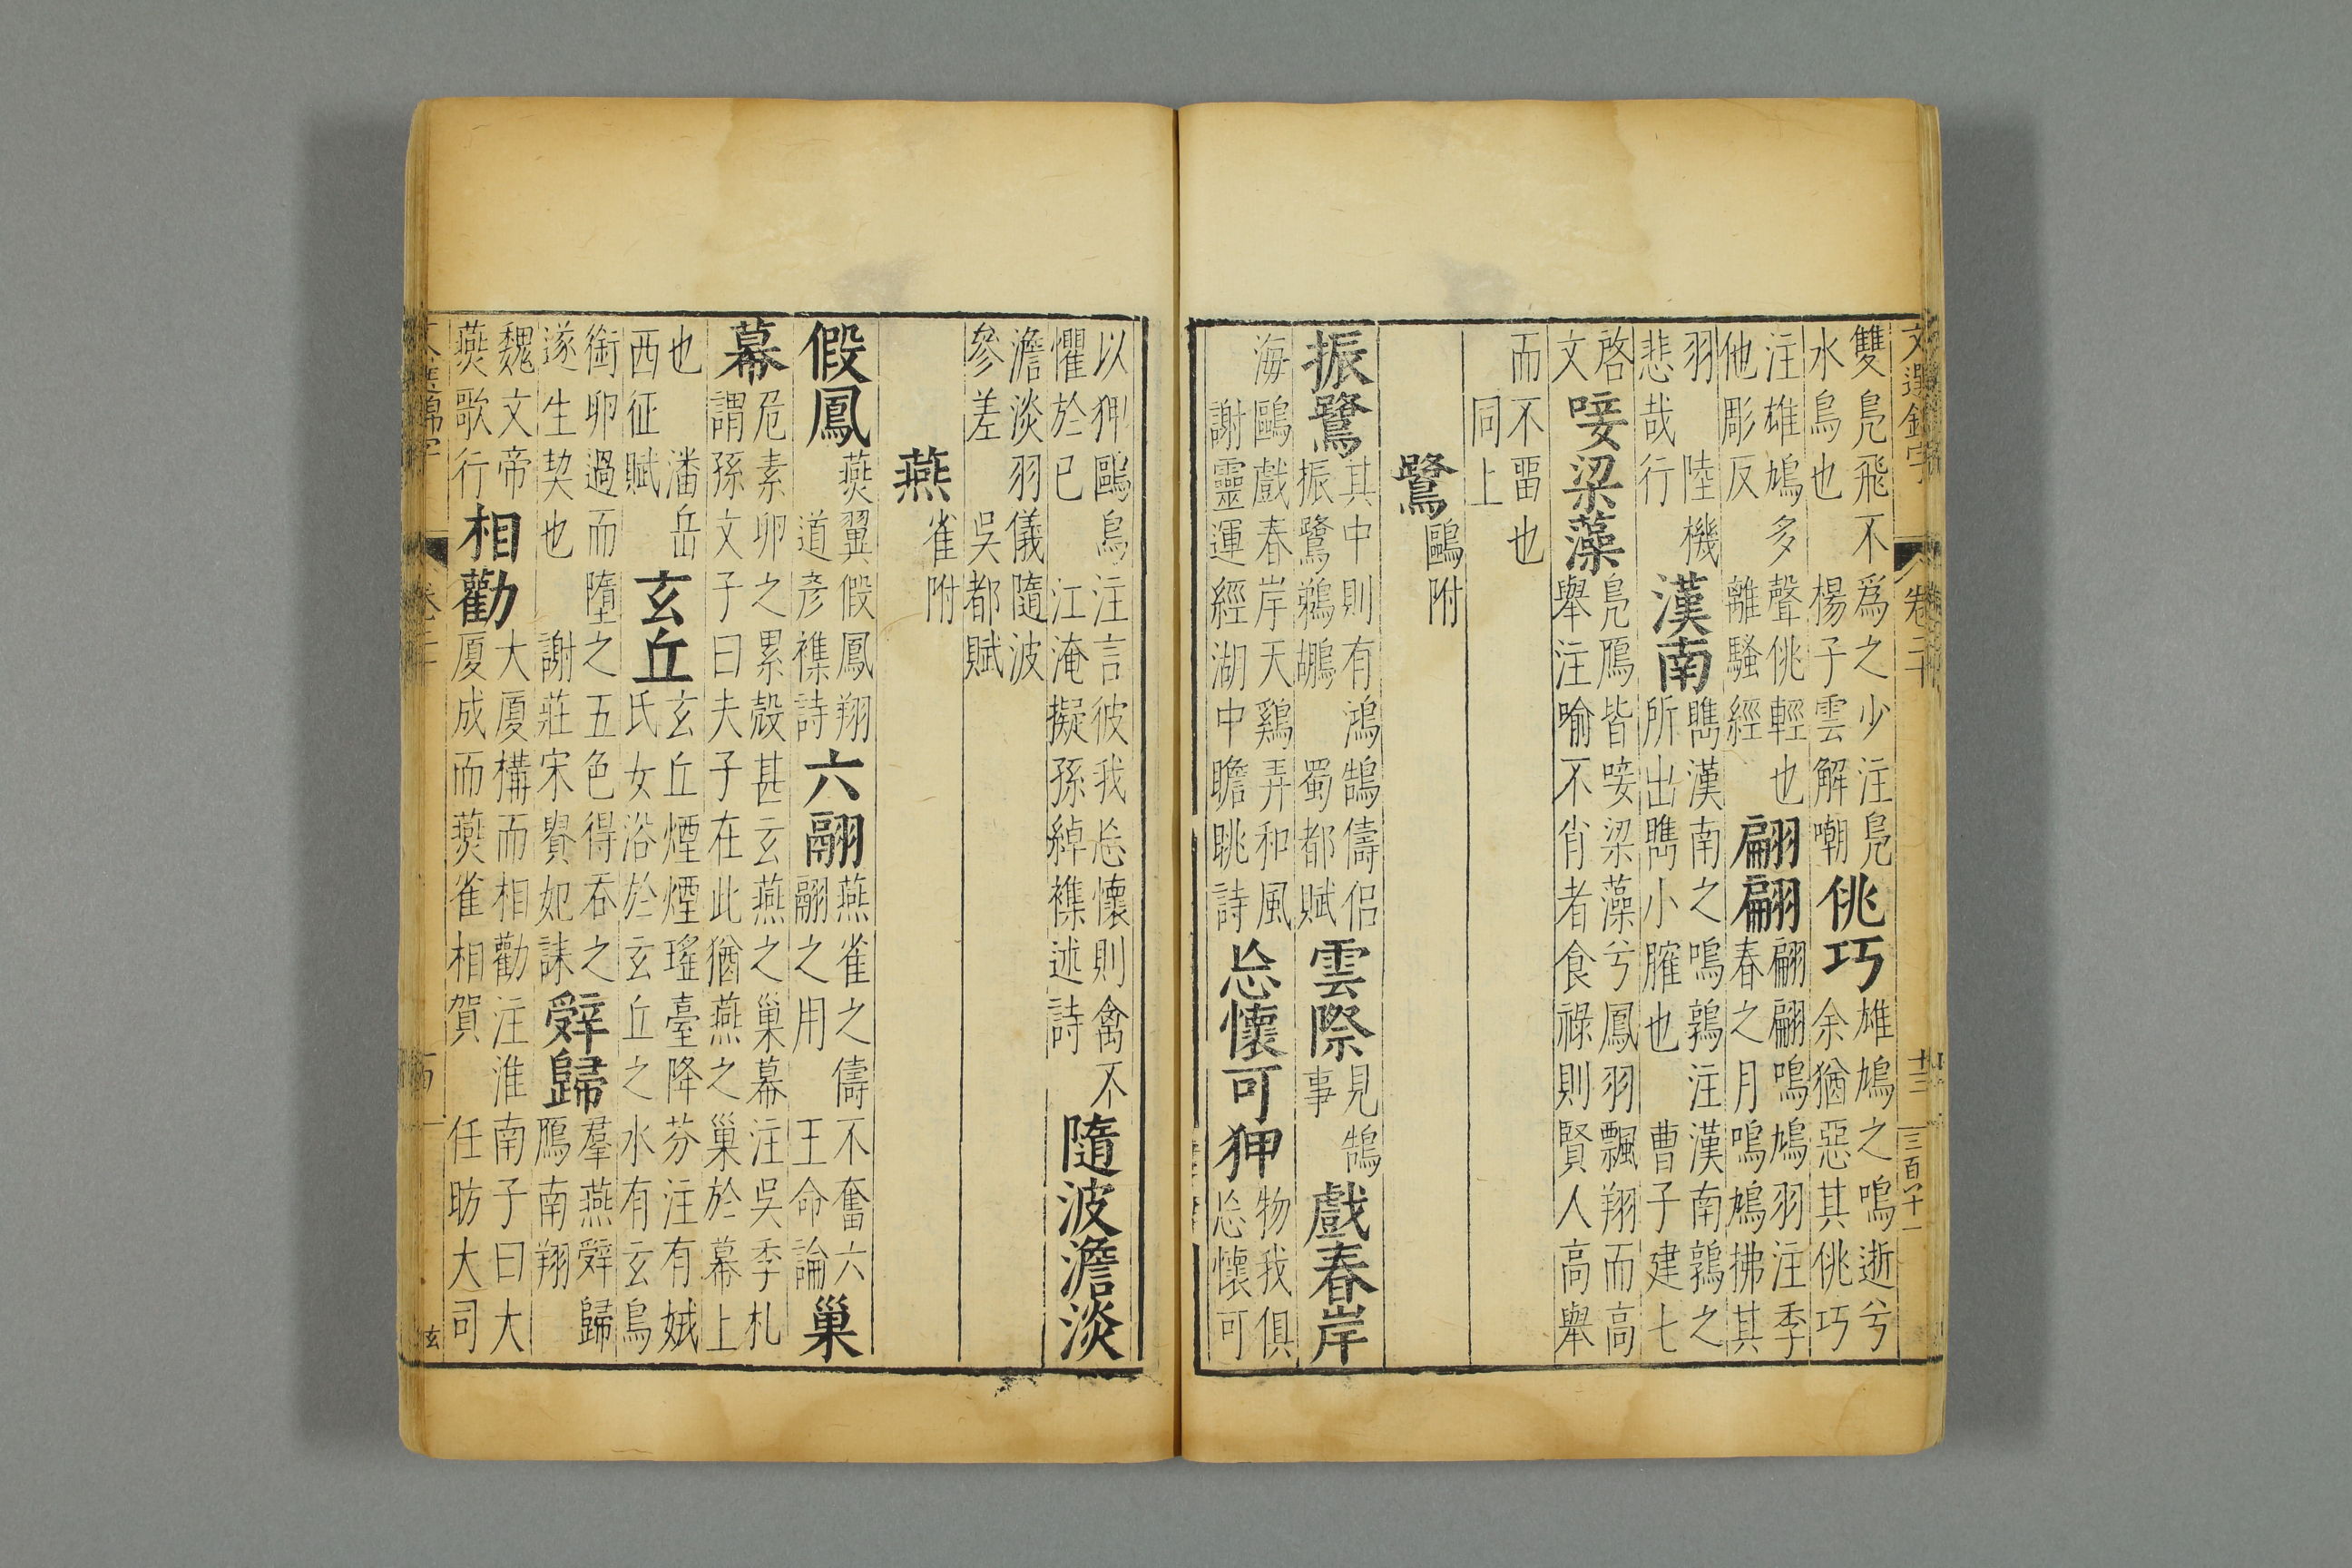 文選錦字 卷二十 十三 三百廿一
雙鳧飛不爲之少注鳧
水鳥也 楊子雲解嘲
佻巧
雄鳩之鳴逝兮
余猶惡其佻巧
注雄鳩多聲佻輕也
他彫反 離騷經
翩翩
翩翩鳴鳩羽注季
春之月鳴鳩拂其
羽 陸機
悲哉行
漢南
臇漢南之鳴鶉注漢南鶉之
所出臇小臛也 曹子建七
啓
文
唼梁藻
鳧鴈皆唼梁藻兮鳳羽飄翔而高
舉注喻不肖者食祿則賢人高舉
而不畱也
同上
鷺
鷗附
振鷺
其中則有鴻鵠儔侶
振鷺鵜鶘 蜀都賦
雲際
見鵠
事
戲春岸
海鷗戲春岸天鷄弄和風
謝靈運經湖中瞻眺詩
忩懷可狎
物我俱
忩懷可
以狎鷗鳥注言彼我忩懷則禽不
懼於已 江淹擬孫綽襍述詩
隨波澹淡
澹淡羽儀隨波
參差 吳都賦
燕
雀附
假鳳
燕翼假鳳翔
道彥襍詩
六翮
燕雀之儔不奮六
翮之用 王命論
巢
幕
危素卵之累殼甚玄燕之巢幕注吳季札
謂孫文子曰夫子在此猶燕之巢於幕上
也 潘岳
西征賦
玄丘
玄丘煙煙瑤臺降芬注有娀
氏女浴於玄丘之水有玄鳥
銜卵過而墮之五色得吞之
遂生契也 謝莊宋貴妃誄
辤歸
羣燕辤歸
鴈南翔
魏文帝
燕歌行
相勸
大厦構而相勸注淮南子曰大
厦成而燕雀相賀 任昉大司